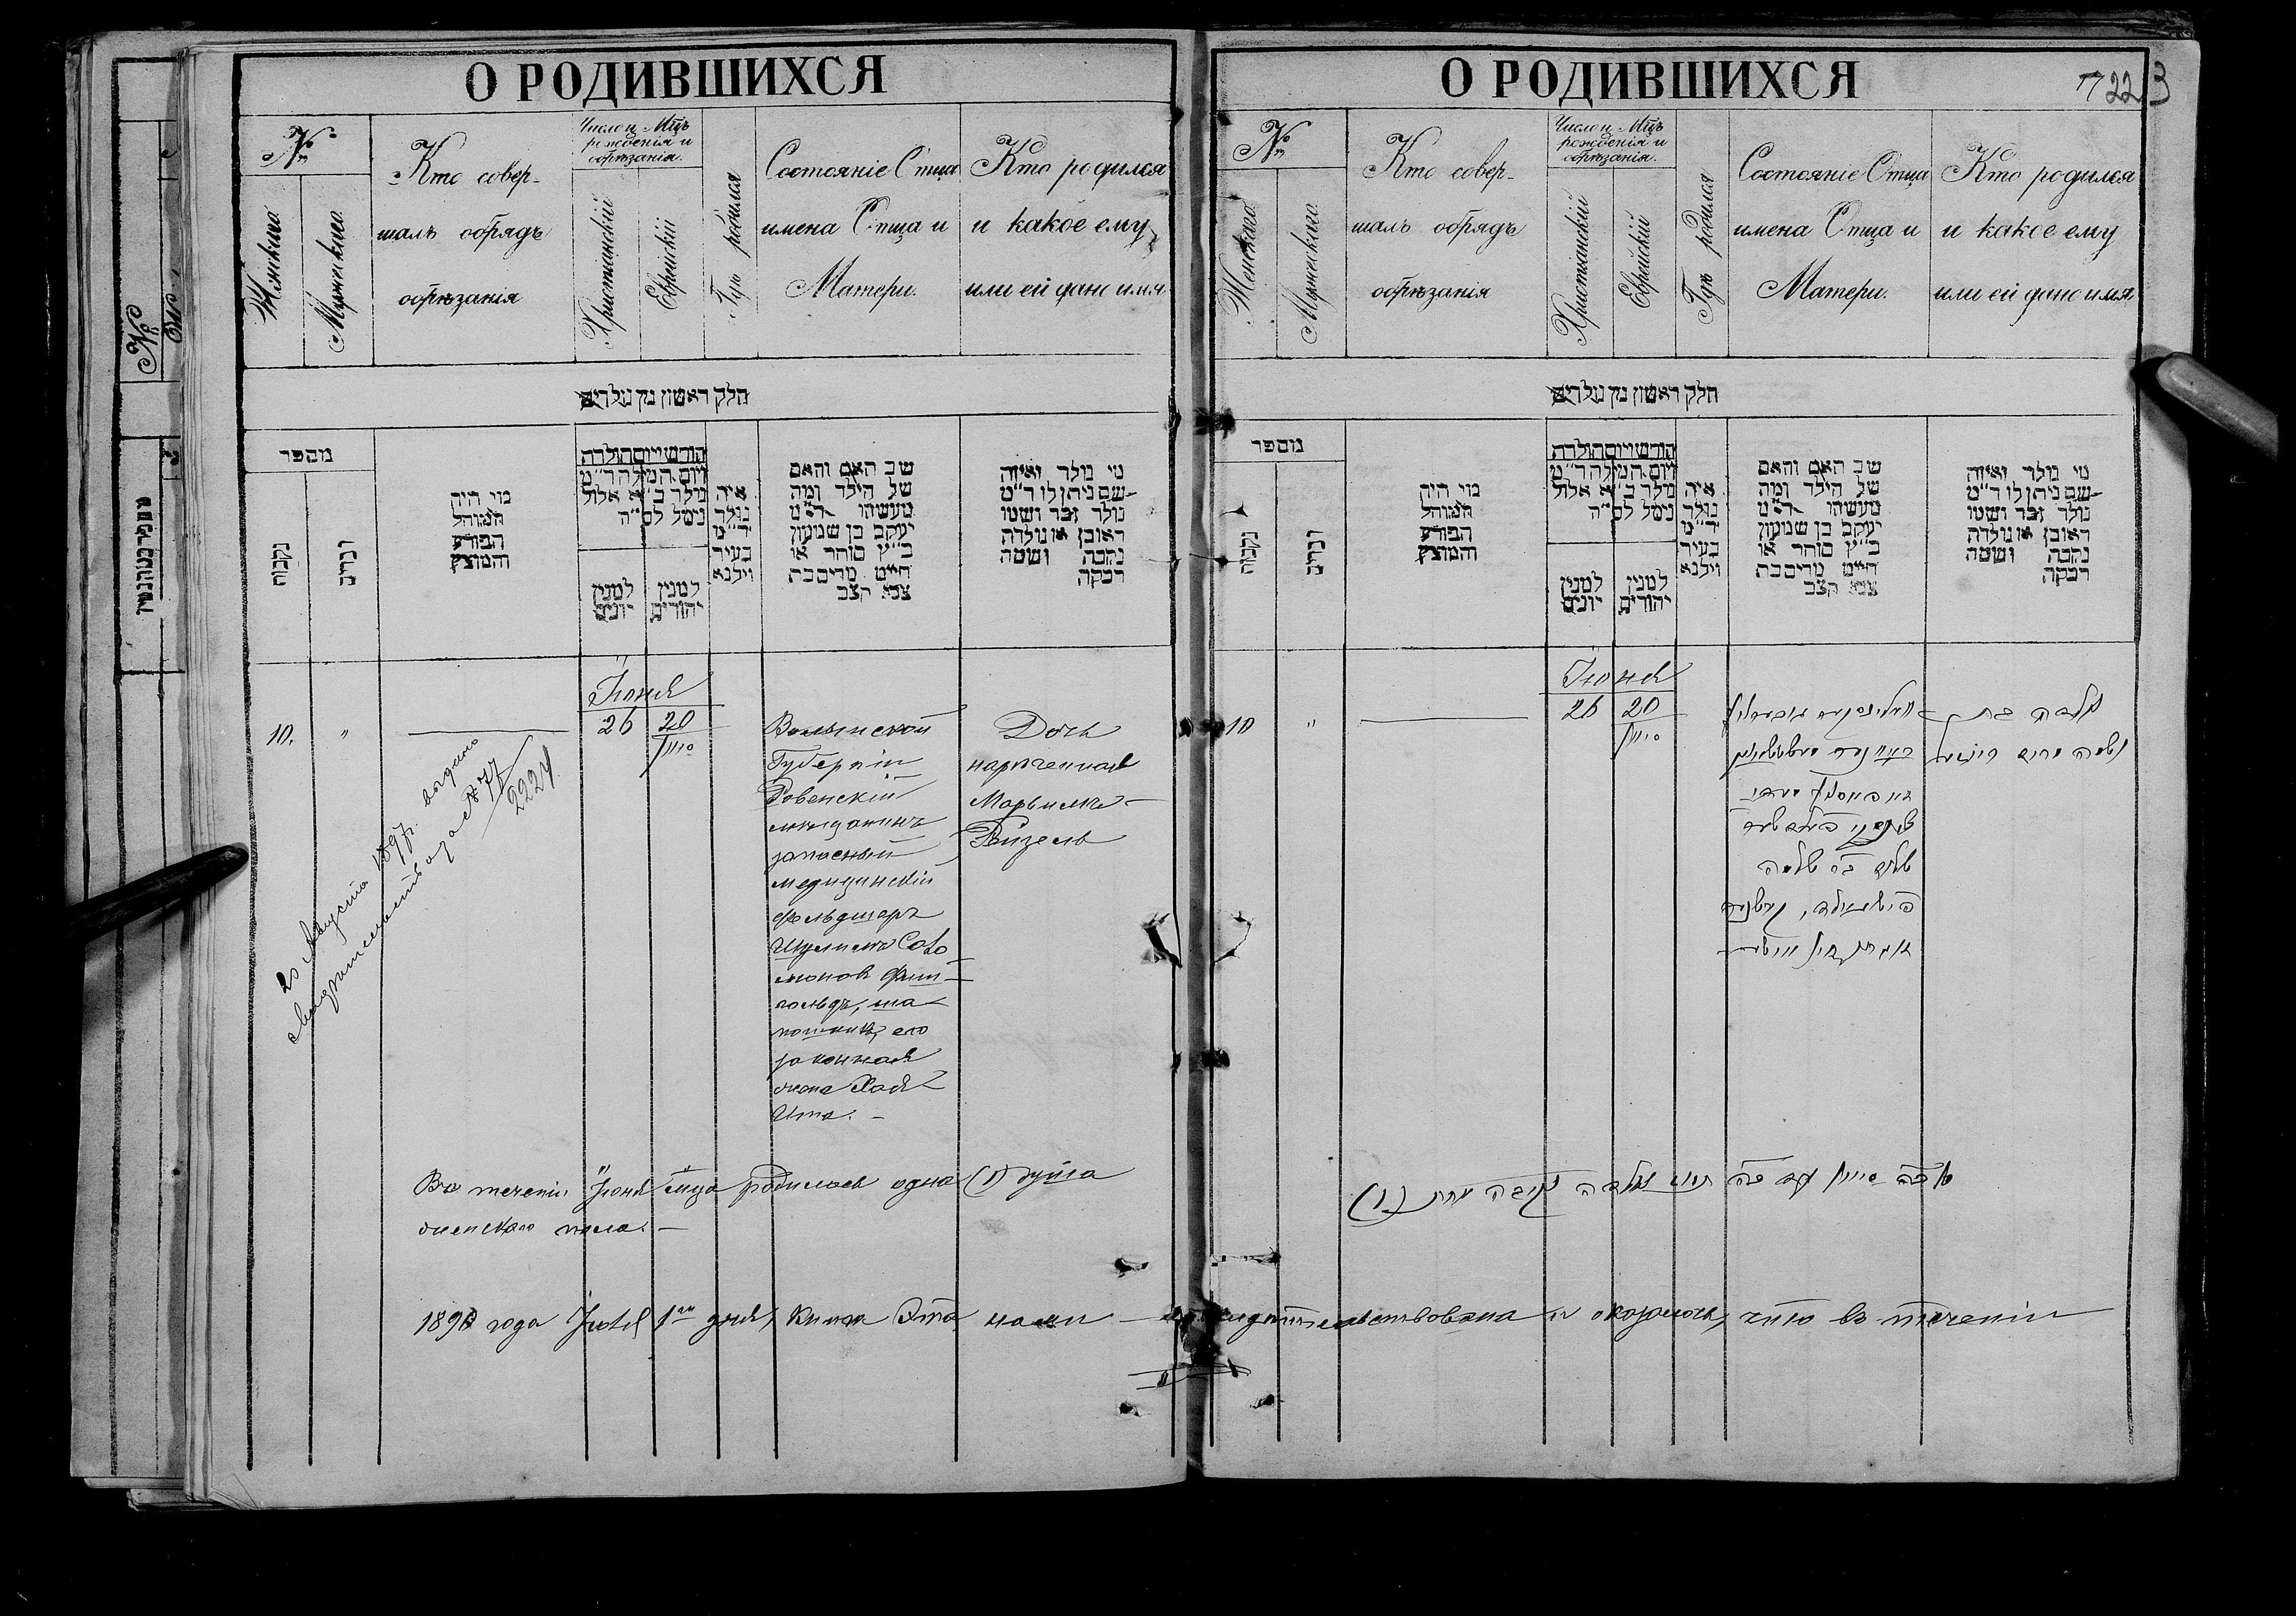 О РОДИВШИХСЯ
№
Женскаго
Мужескаго
Кто совер-
шалъ обрядъ
обрѣзанія
Число и Мцъ
рожденія и
обрѣзанія.
Христіанскій
Еврейскій
Гдѣ родился
Состояніе Отца
имена Отца и
Матери.
Кто родился
и какое ему
или ей дано имя
חלק ראשון מן נולדים
מספר
נקבות
זכרים
מי היה
המוהל
הפורע
והמוצץ
חודש ויום הולדת
ויום המילה ד״מ
נולד ב״א אלול
נימל לס״ה
למנין
יונים
למנין
יהודים
איה
נולד
ד״מ
בעיר
וילנא
שב האם והאם
של הילד ומה
מעשהו ד״מ
יעקב בן שמעון
כ״ץ סוחר או
חייט מרים בת
צבא קצב
מי נולד ואיזה
שם ניתן לו ד״מ
נולד זכר ושמו
ראובן או נולדה
נקבה ושמה
רבקה
10.
"
Іюня
26
20
סיון
Волынской
Губерніи
Ровенскій
мѣщанинъ
запасный
медицинскій
фельдшеръ
Шулимъ Соло
моновъ
его
законная
жена Хая
Ита. —
Дочь
нареченная
Марьимъ —
Рейзель
20 Августа 1897 г. выдано
свидѣтельство за № 77
2224
Въ теченіи Іюня мца родилась одна (1) душа
женскаго пола. —
О РОДИВШИХСЯ
22
3
№
Женскаго
Мужескаго
Кто совер-
шалъ обрядъ
обрѣзанія
Число и Мцъ
рожденія и
обрѣзанія.
Христіанскій
Еврейскій
Гдѣ родился
Состояніе Отца
имена Отца и
Матери.
Кто родился
и какое ему
или ей дано имя
חלק ראשון מן נולדים
מספר
נקבות
זכרים
מי היה
המוהל
הפורע
והמוצץ
חודש ויום הולדת
ויום המילה ד״מ
נולד ב״א אלול
נימל לס״ה
למנין
יונים
למנין
יהודים
איה
נולד
ד״מ
בעיר
וילנא
שב האם והאם
של הילד ומה
מעשהו ד״מ
יעקב בן שמעון
כ״ץ סוחר או
חייט מרים בת
צבא קצב
מי נולד ואיזה
שם ניתן לו ד״מ
נולד זכר ושמו
ראובן או נולדה
נקבה ושמה
רבקה
10
"
Іюня
26
20
סיון
פעלדשער
שלום בר שלמה
נולדה בת
ושמה מרים רייזיל
נולדה נקבה אחת (1)
1897 года Іюля 1го дня, книга эта нами — освидѣтельствована и оказалось, что въ теченіи